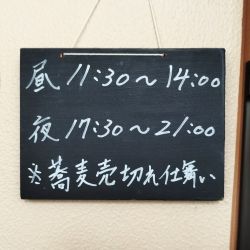 昼 11:30～14:00
夜 17:30～21:00
※蕎麦売切れ仕舞い